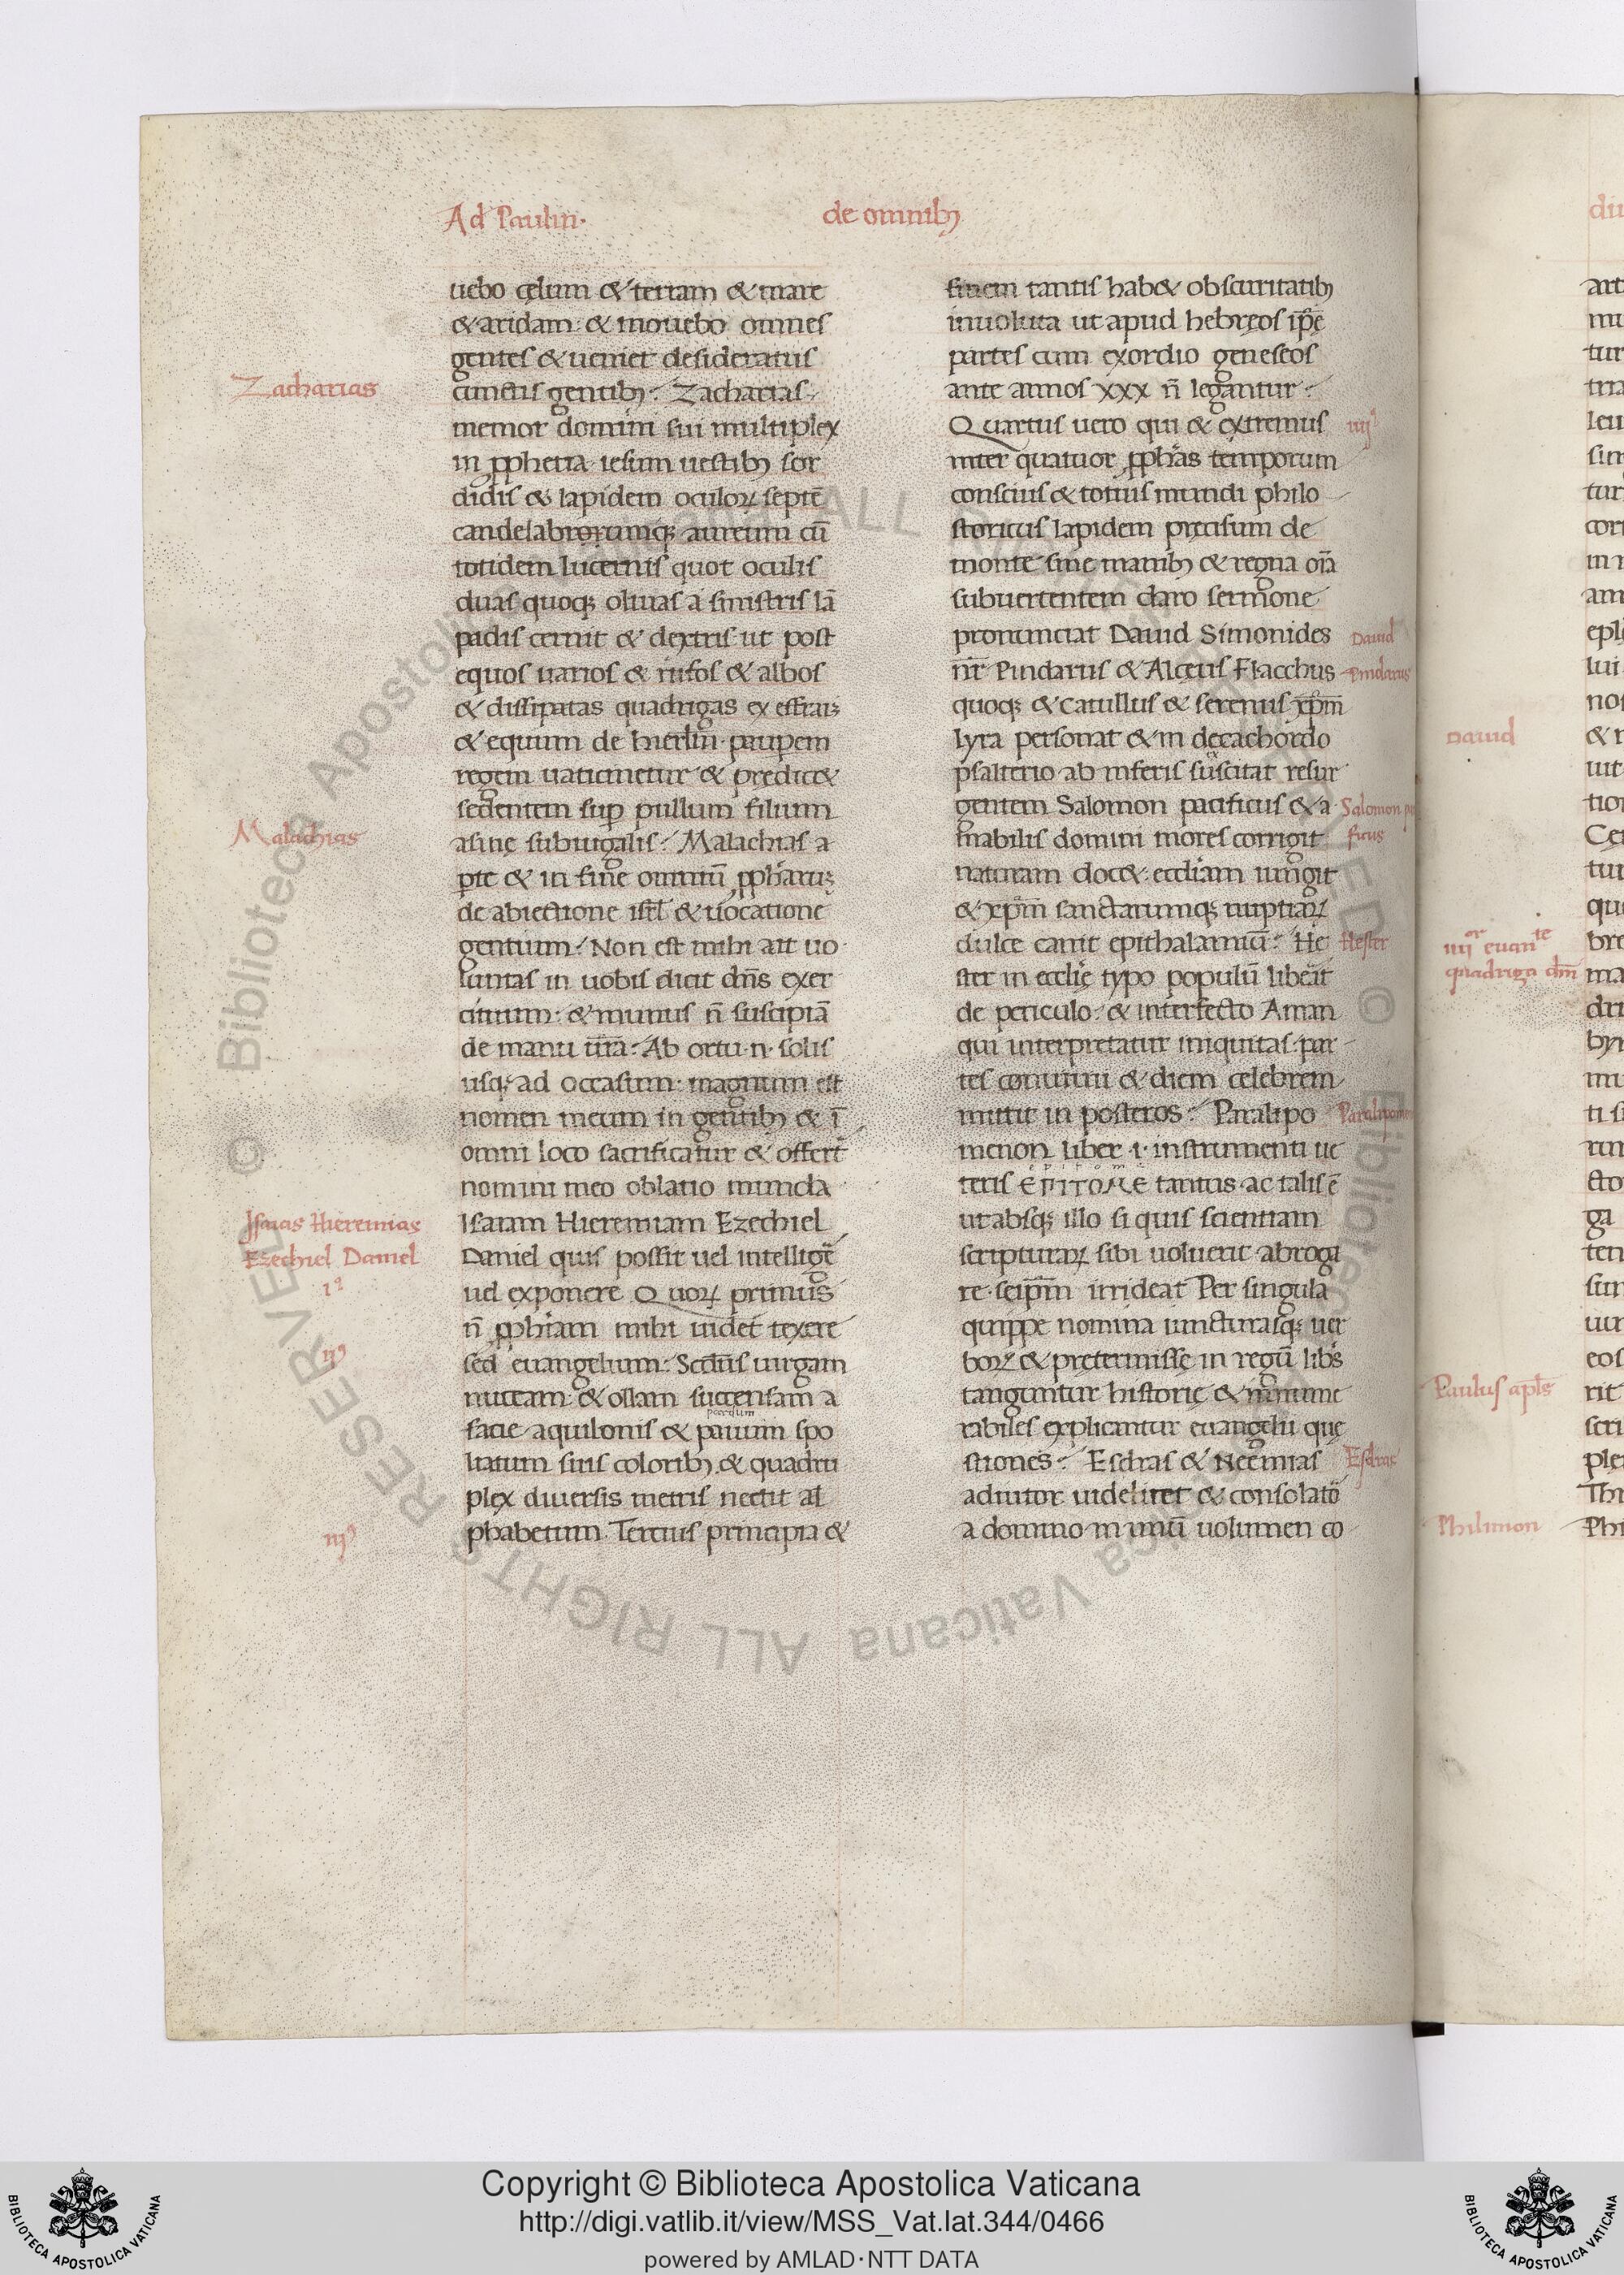 Ad Paulin·
de omnib;
uebo cęlum & terram & mare
& aridam· & mouebo omnes
gentes & ueniet desideratus
cunctis gentib;· Zacharias·
Zacharias
memor domini sui multiplex
in ꝓphetia· iesum uestib; sor
didis & lapidem oculoꝝ septē
candelabrorumq; aureum cū
totidem lucernis quot oculis
duas quoq; oliuas a sinistris lā
padis cernit & dextris· ut post
equos uarios & rufos & albos
& dissipatas quadrigas ex effrai;
& equum de hierlm̄· pauꝑem
regem uaticinetur & prędic&
sedentem suꝑ pullum filium
asinę subiugalis· Malachias a
Malachias
ꝑte & in fine omniū ꝓpharu;
de abiectione isrl̄ & uocatione
gentium· Non est mihi ait uo
luntas in uobis dicit dn̄s exer
cituum· & munus n̄ suscipiā
de manu ur̄a· Ab ortu·n· solis
usq; ad occasum· magnum est
nomen meum in gentib; & ī
omni loco sacrificatur & offert̄
nomini meo oblatio munda
Isaiam Hieremiam Ezechiel
Isaias Hieremias
Daniel quis possit uel intelligē
Ezechiel Daniel
uel exponere Quoꝝ primus
1ꝰ
n̄ ꝓphiam mihi uidet texere
sed euangelium· Secdūs uirgam
ijꝰ
nuceam· & ollam succensam a
facie aquilonis & pauum spo
pardum
liatum suis colorib; & quadru
plex diuersis metris nectit al
phabetum· Tercius principia &
iijꝰ
finem tantis hab& obscuritatib;
inuoluta ut apud hebręos ip̄ę
partes cum exordio geneseos
ante annos xxx n̄ legantur·
Quartus uero qui & extremus
iiijꝰ
inter quatuor ꝓphas temporum
conscius & totius mundi philo
storicus lapidem pręcisum de
monte sine manib; & regna oīa
subuertentem claro sermone
pronunciat Dauid Simonides
Dauid
nr̄ Pindarus & Alcęus Flacchus
Pindarus
quoq; & catullus & serenus xp̄m
lyra personat & in decachordo
psalterio ab inferis suscitat resur
gentem Salomon pacificus & a
Salomon pa
mabilis domini mores corrigit
ficus
naturam doc& eccliam iungit
& xp̄m sanctarumq; nuptiaꝝ
dulce canit epithalamiū· He
Hester
ster in ecclię typo populū liberat
de periculo· & interfecto Aman
qui interpretatur iniquitas· par
tes conuiuii & diem celebrem
mittit in posteros· Paralipo
Paralipomen
menon liber ·i· instrumenti ue
teris ΕΠΙΤΟΜΕ tantus ac talis ē
epitome
ut absq; illo si quis scientiam
scripturaꝝ sibi uoluerit abroga
re· seip̄m irrideat Per singula
quippe nomina iuncturasq; uer
boꝝ & pretermissę in regū libs
tanguntur historię & innume
rabiles explicantur euangelii quę
stiones· Esdras & Neemias
Esdras
adiutor uidelicet & consolatō
a domino in unū uolumen co
dauid
iiijor euante
quadriga dm̄
Paulus apl̄s
Philimon
Copyright © Biblioteca Apostolica Vaticana
http://digi.vatlib.it/view/MSS_Vat.lat.344/0466
powered by AMLAD·NTT DATA
BIBLIOTECA APOSTOLICA VATICANA
BIBLIOTECA APOSTOLICA VATICANA
© Biblioteca Apostolica Vaticana ALL RIGHTS RESERVED